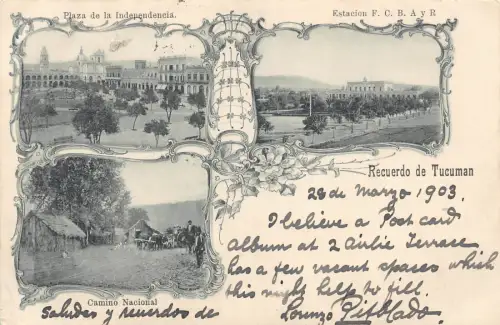 Plaza de la Independencia.
Estacion F. C. B. A y R
Recuerdo de Tucuman
28 de Marzo 1903.
I believe a Post card
album at 2 Airlie Terrace
has a few vacant spaces which
this might help to fill.
Camino Nacional
Saludes y recuerdos de Lorenzo Pitblado